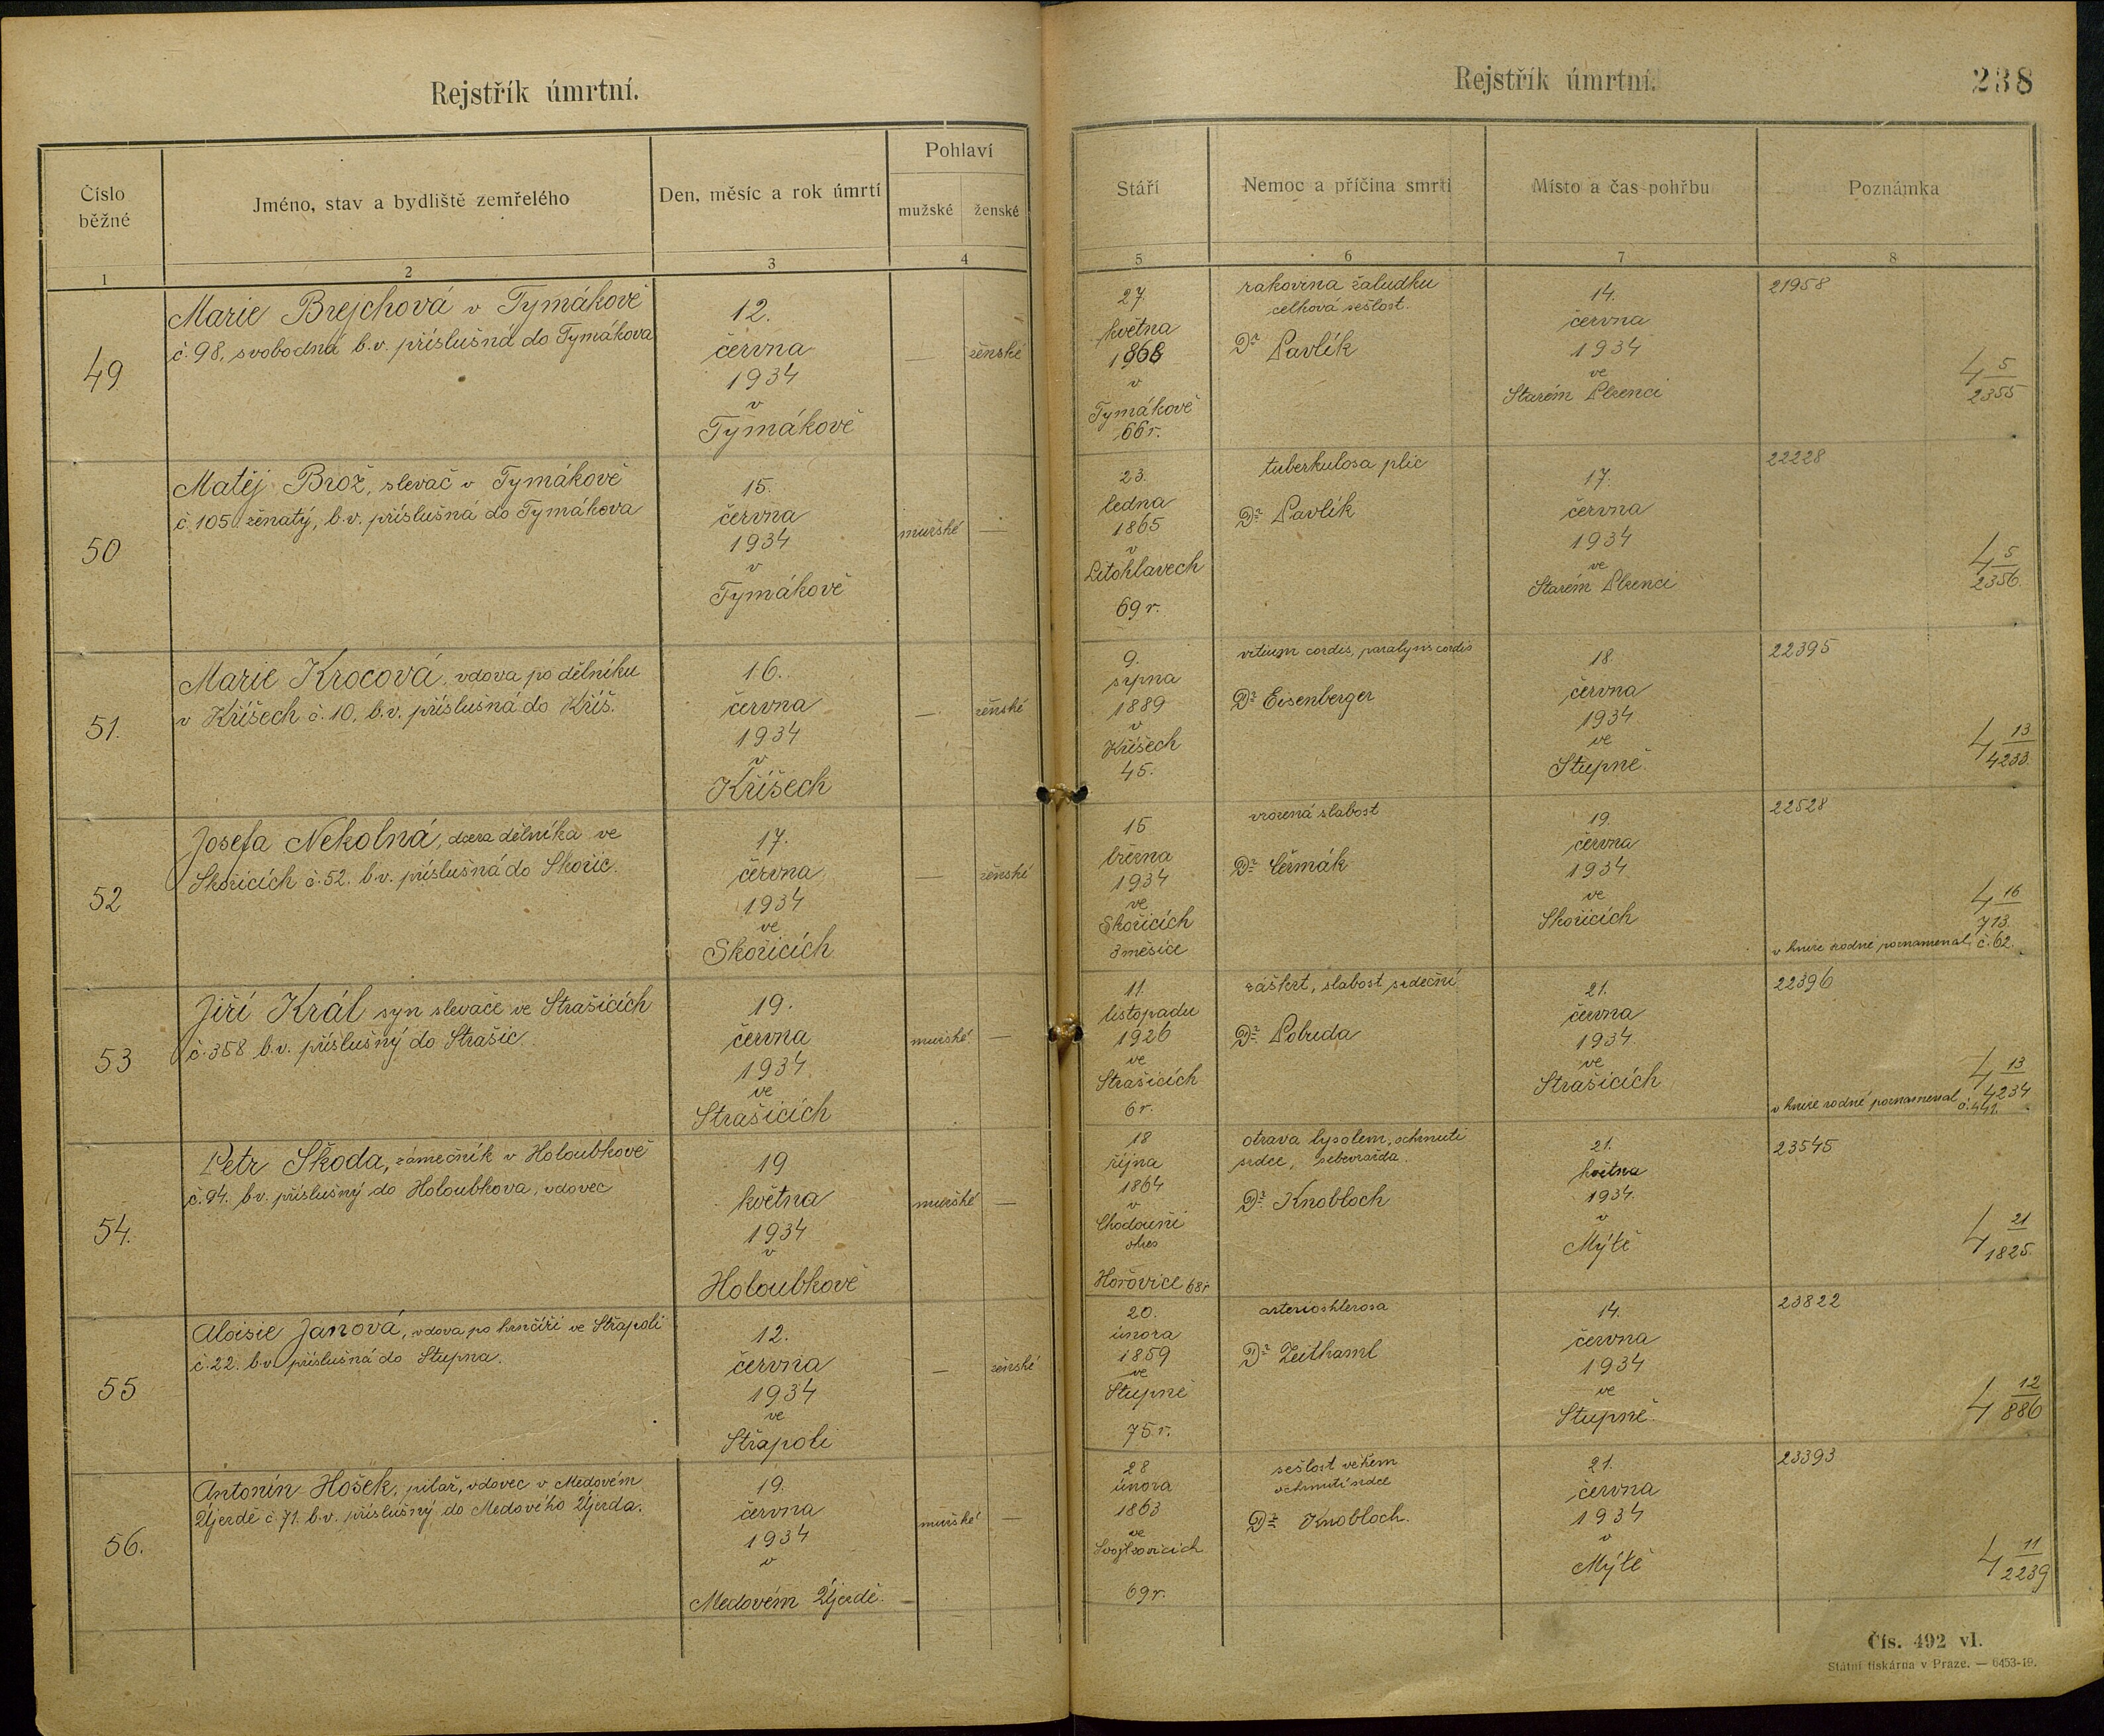 Rejstřík úmrtní.
Číslo běžné
Jméno, stav a bydliště zemřelého
Den, měsíc a rok úmrtí
Pohlaví
mužské
ženské
1
2
3
4
49
Marie Brejchová v Tymákově
č. 98, svobodná b.v. příslušná do Tymákova
12.
června
1934
v
Tymákově
—
ženské
50
Matěj Brož, slevač v Tymákově
č. 105 ženatý, b.v. příslušná do Tymákova
15.
června
1934
v
Tymákově
mužské
—
51.
Marie Krocová, vdova po dělníku
v Kříšech č. 10, b.v. příslušná do Kříš.
16.
června
1934
v
Kříšech
—
ženské
52
Josefa Nekolná, dcera dělníka ve
Skořicích č. 52. b.v. příslušná do Skořic.
17.
června
1934
ve
Skořicích
—
ženské
53
Jiří Král syn slevače ve Strašicích
č. 358 b.v. příslušný do Strašic.
19.
června
1934
ve
Strašicích
mužské
—
54.
Petr Skoda, zámečník v Holoubkově
č. 94. b.v. příslušný do Holoubkova, vdovec
19
května
1934
v
Holoubkově
mužské
—
55
Aloisie Janová, vdova po hrnčíři ve Střapoli
č. 22. b.v. příslušná do Stupna.
12.
června
1934
ve
Střapoli
—
ženské
56.
Antonín Hošek, pilař, vdovec v Medovém
Újezdě č. 71. b.v. příslušný do Medového Újezda.
19.
června
1934
v
Medovém Újezdě.
mužské
—
Rejstřík úmrtní.
238
Stáří
Nemoc a příčina smrti
Místo a čas pohřbu
Poznámka
5
6
7
8
27.
května
1868
v
Tymákově
66 r.
rakovina žaludku
celková sešlost.
Dr Pavlík
14.
června
1934
ve
Starém Plzenci
21958
4 5
2355
23.
ledna
1865
v
Litohlavech
69 r.
tuberkulosa plic
Dr Pavlík
17.
června
1934
ve
Starém Plzenci
22228
4 5
2356.
9.
srpna
1889
v
Kříšech
45.
vitium cordis, paralysis cordis
Dr Eisenberger
18.
června
1934
ve
Stupně.
22395
4 13
4233.
15
března
1934
ve
Skořicích
3 měsíce
vrozená slabost
Dr Čermák
19.
června
1934
ve
Skořicích
22528
4 16
713.
v knize rodné poznamenal č. 62.
11.
listopadu
1926
ve
Strašicích
6 r.
záškrt, slabost srdeční
Dr Pobuda
21.
června
1934
ve
Strašicích
22396
4 13
4234
v knize rodné poznamenal č. 441.
18
října
1864
v
Chodouni
okres
Hořovice 68 r
otrava lysolem, ochrnutí
srdce, sebevražda.
Dr Knobloch
21.
května
1934.
v
Mýtě
23545
4 21
1825.
20.
února
1859
ve
Stupně
75 r.
arteriosklerosa
Dr Zeithaml
14.
června
1934
ve
Stupně.
23822
4 12
886
28
února
1863
ve
Svojkovicích
69 r.
sešlost věkem
ochrnutí srdce
Dr Knobloch.
21.
června
1934
v
Mýtě
23393
4 11
2239
Čís. 492 vl.
Státní tiskárna v Praze. — 6453-19.